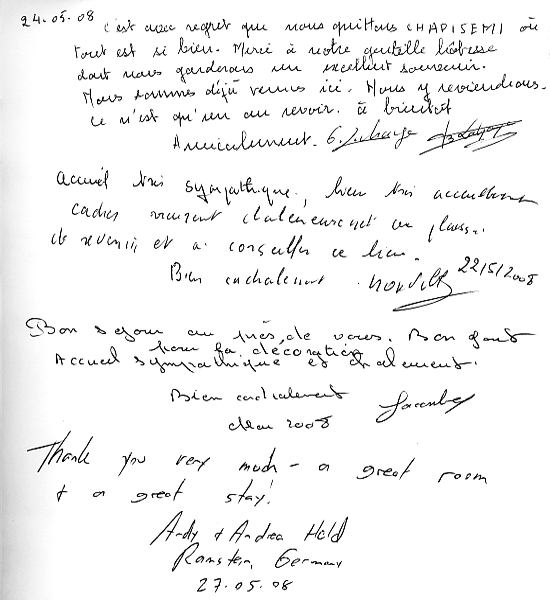 24.05.08 c'est avec regret que nous quittons CHAPISEMI où
tout est si bien. Merci à notre gentille hôtesse
dont nous garderons un excellent souvenir.
Nous sommes déjà venus ici. Nous y reviendrons.
Ce n'est qu'un au revoir. à bientôt
Amicalement. G.
Accueil très sympathique, lieu très accueillant
cadre vraiment chaleureux et un plaisir
de revenir et a conseiller ce lieu.
Bien cordialement 22/5/2008
Bon sejour au près de vous. Bon gout
pour la décoration
Accueil sympathique et
Bien cordialement
Mai 2008
Thank you very much - a great room
+ a great stay!
Andy + Andrea Held
Ramstein, Germany
27.05.08